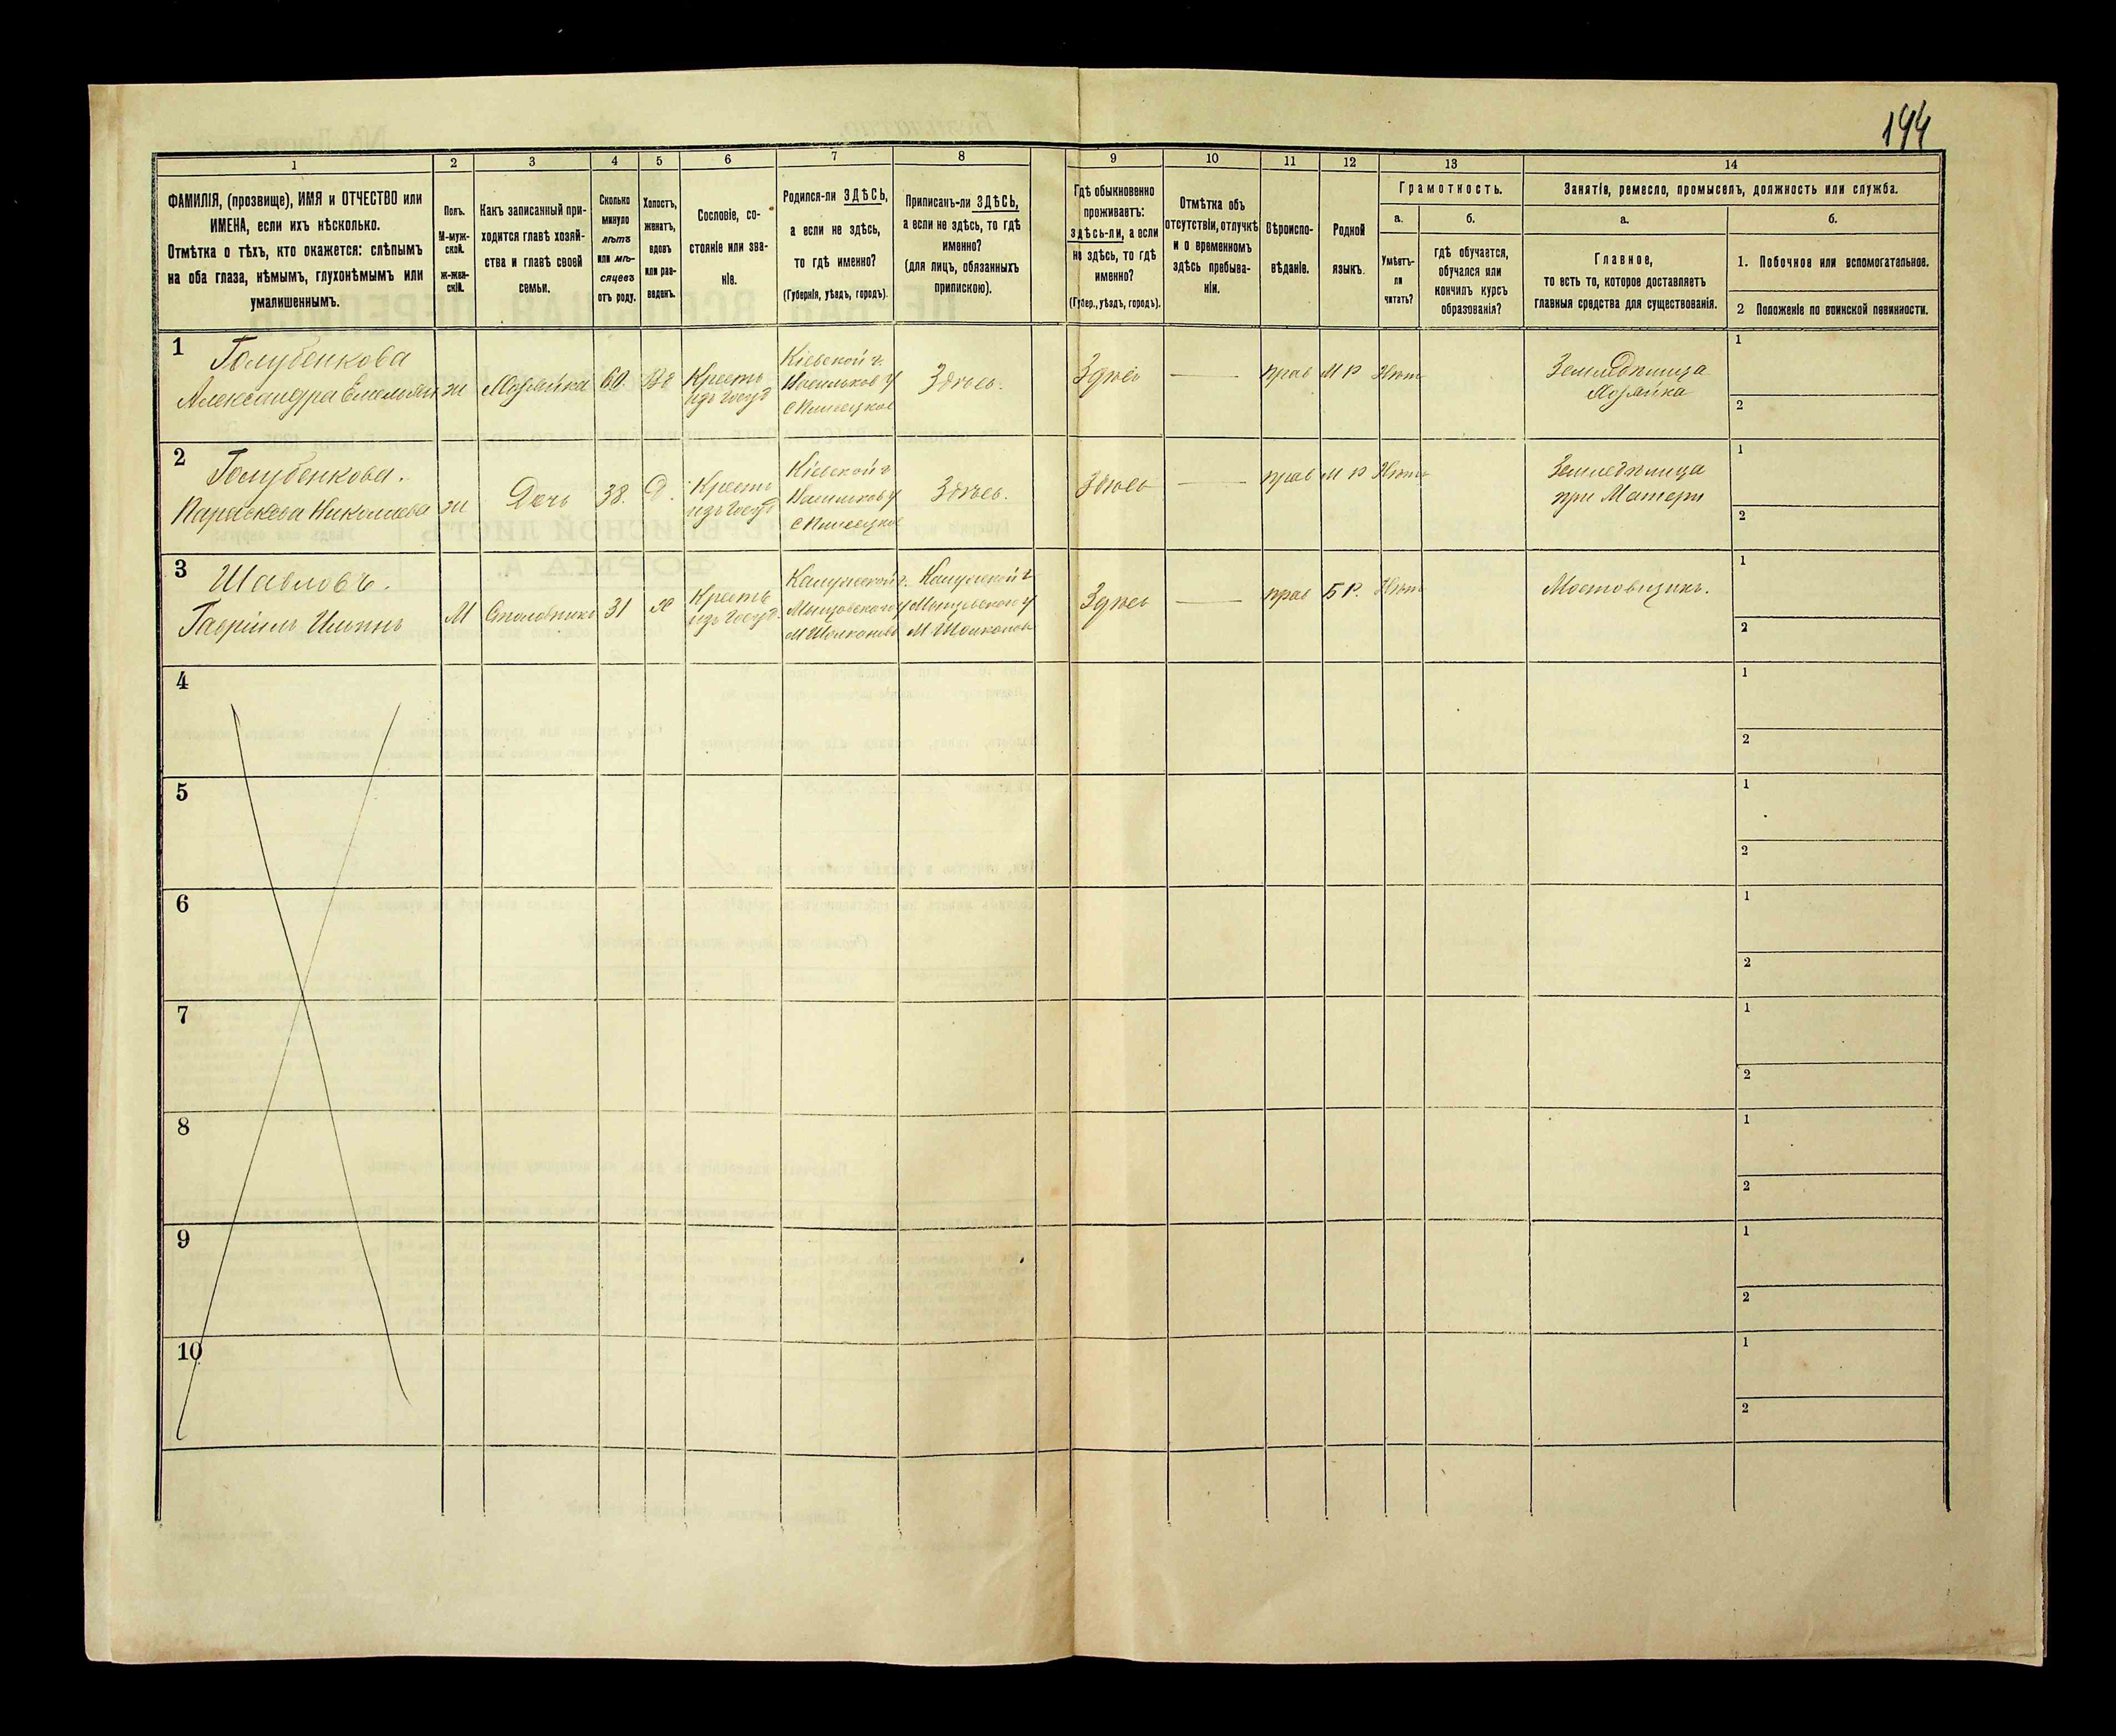 144
1 2 3 4 5 6 7 8 9 10 11 12 13 14
ФАМИЛІЯ, (прозвище), ИМЯ и ОТЧЕСТВО или
ИМЕНА, если ихъ нѣсколько.
Отмѣтка о тѣхъ, кто окажется: слѣпымъ
на оба глаза, нѣмымъ, глухонѣмымъ или
умалишеннымъ.
Полъ.
М-муж-
ской.
Ж-жен-
скій.
Какъ записанный при-
ходится главѣ хозяй-
ства и главѣ своей
семьи.
Сколько
минуло
лѣтъ
или мѣ-
сяцевъ
отъ роду.
Холостъ,
женатъ,
вдовъ
или раз-
веденъ.
Сословіе, со-
стояніе или зва-
ніе.
Родился-ли ЗДѢСЬ,
а если не здѣсь,
то гдѣ именно?
(Губернія, уѣздъ, городъ).
Приписанъ-ли ЗДѢСЬ,
а если не здѣсь, то гдѣ
именно?
(для лицъ, обязанныхъ
припискою).
Гдѣ обыкновенно
проживаетъ:
здѣсь-ли, а если
не здѣсь, то гдѣ
именно?
(Губер., уѣздъ, городъ).
Отмѣтка объ
отсутствіи, отлучкѣ
и о временномъ
здѣсь пребыва-
ніи.
Вѣроиспо-
вѣданіе.
Родной
языкъ.
Грамотность.
а. б.
Умѣетъ-
ли
читать?
Гдѣ обучается,
обучался или
кончилъ курсъ
образованія?
Занятіе, ремесло, промыселъ, должность или служба.
а. б.
Главное,
то есть то, которое доставляетъ
главныя средства для существованія.
1. Побочное или вспомогательное.
2 Положеніе по воинской повинности.
1
Голубенкова
Александра Емельян
ж
Хозяйка
60
Вд
Крестъ
изъ Госуд
Кіевской г.
Васильков У
с Плисецкое
Здѣсь.
Здѣсь
прав
М Р
Нѣтъ
Земледѣлица
Хозяйка
1
2
2
Голубенкова.
Параскева Николаева
ж
Дочь
38.
Д.
Крестъ
изъ Госуд
Кіевской г
Васильков У
с Плисецкое
Здѣсь.
Здѣсь
прав
М Р
Нѣтъ
Земледѣлица
при Матери
1
2
3
Шавловъ.
Гавріилъ Ильинъ
М
31
Х
Крестъ
изъ Госуд.
Калужской г.
Калужской г
Здѣсь
прав
Б Р.
Нѣтъ
Мостовщикъ.
1
2
4
1
2
5
1
2
6
1
2
7
1
2
8
1
2
9
1
2
10
1
2